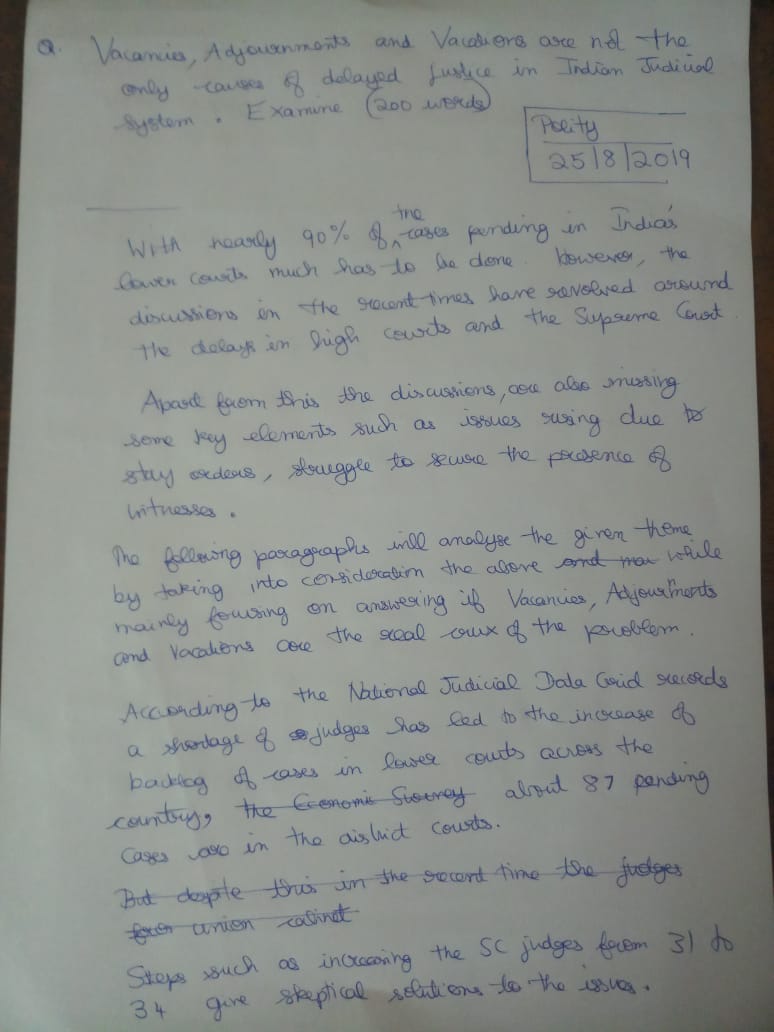 Q. Vacancies, Adjournments and Vacations are not the
only causes of delayed Justice in Indian Judicial
System. Examine (200 words)
Polity
25/8/2019
With nearly 90% of the cases pending in India's
lower courts much has to be done. However, the
discussions in the recent times have revolved around
the delays in high courts and the Supreme Court.
Apart from this the discussions, are also missing
some key elements such as issues rising due to
stay orders, struggle to secure the presence of
witnesses.
The following paragraphs will analyse the given theme
by taking into consideration the above and while
mainly focusing on answering if Vacancies, Adjournments
and Vacations are the real crux of the problem.
According to the National Judicial Data Grid records
a shortage of judges has led to the increase of
backlog of cases in lower courts across the
country, the Economic Survey about 87 pending
cases are in the district courts.
But despite this in the recent time the judges
union cabinet
Steps such as increasing the SC judges from 31 to
34 give skeptical solutions to the issues.